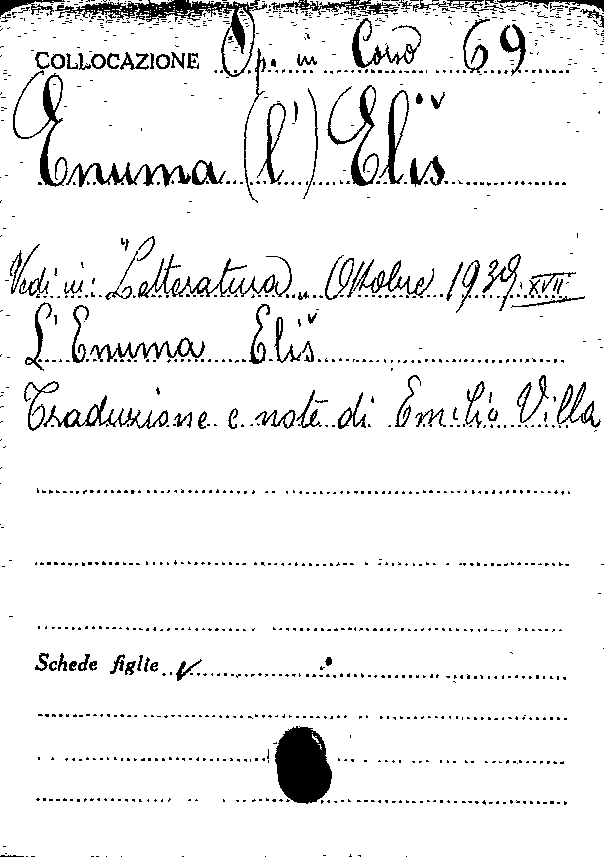 COLLOCAZIONE Op. in Corso 69
Enuma (l') Eliš
Vedi in: "Letteratura" Ottobre 1939 XVII
L'Enuma Eliš
Traduzione e note di Emilio Villa
Schede figlie